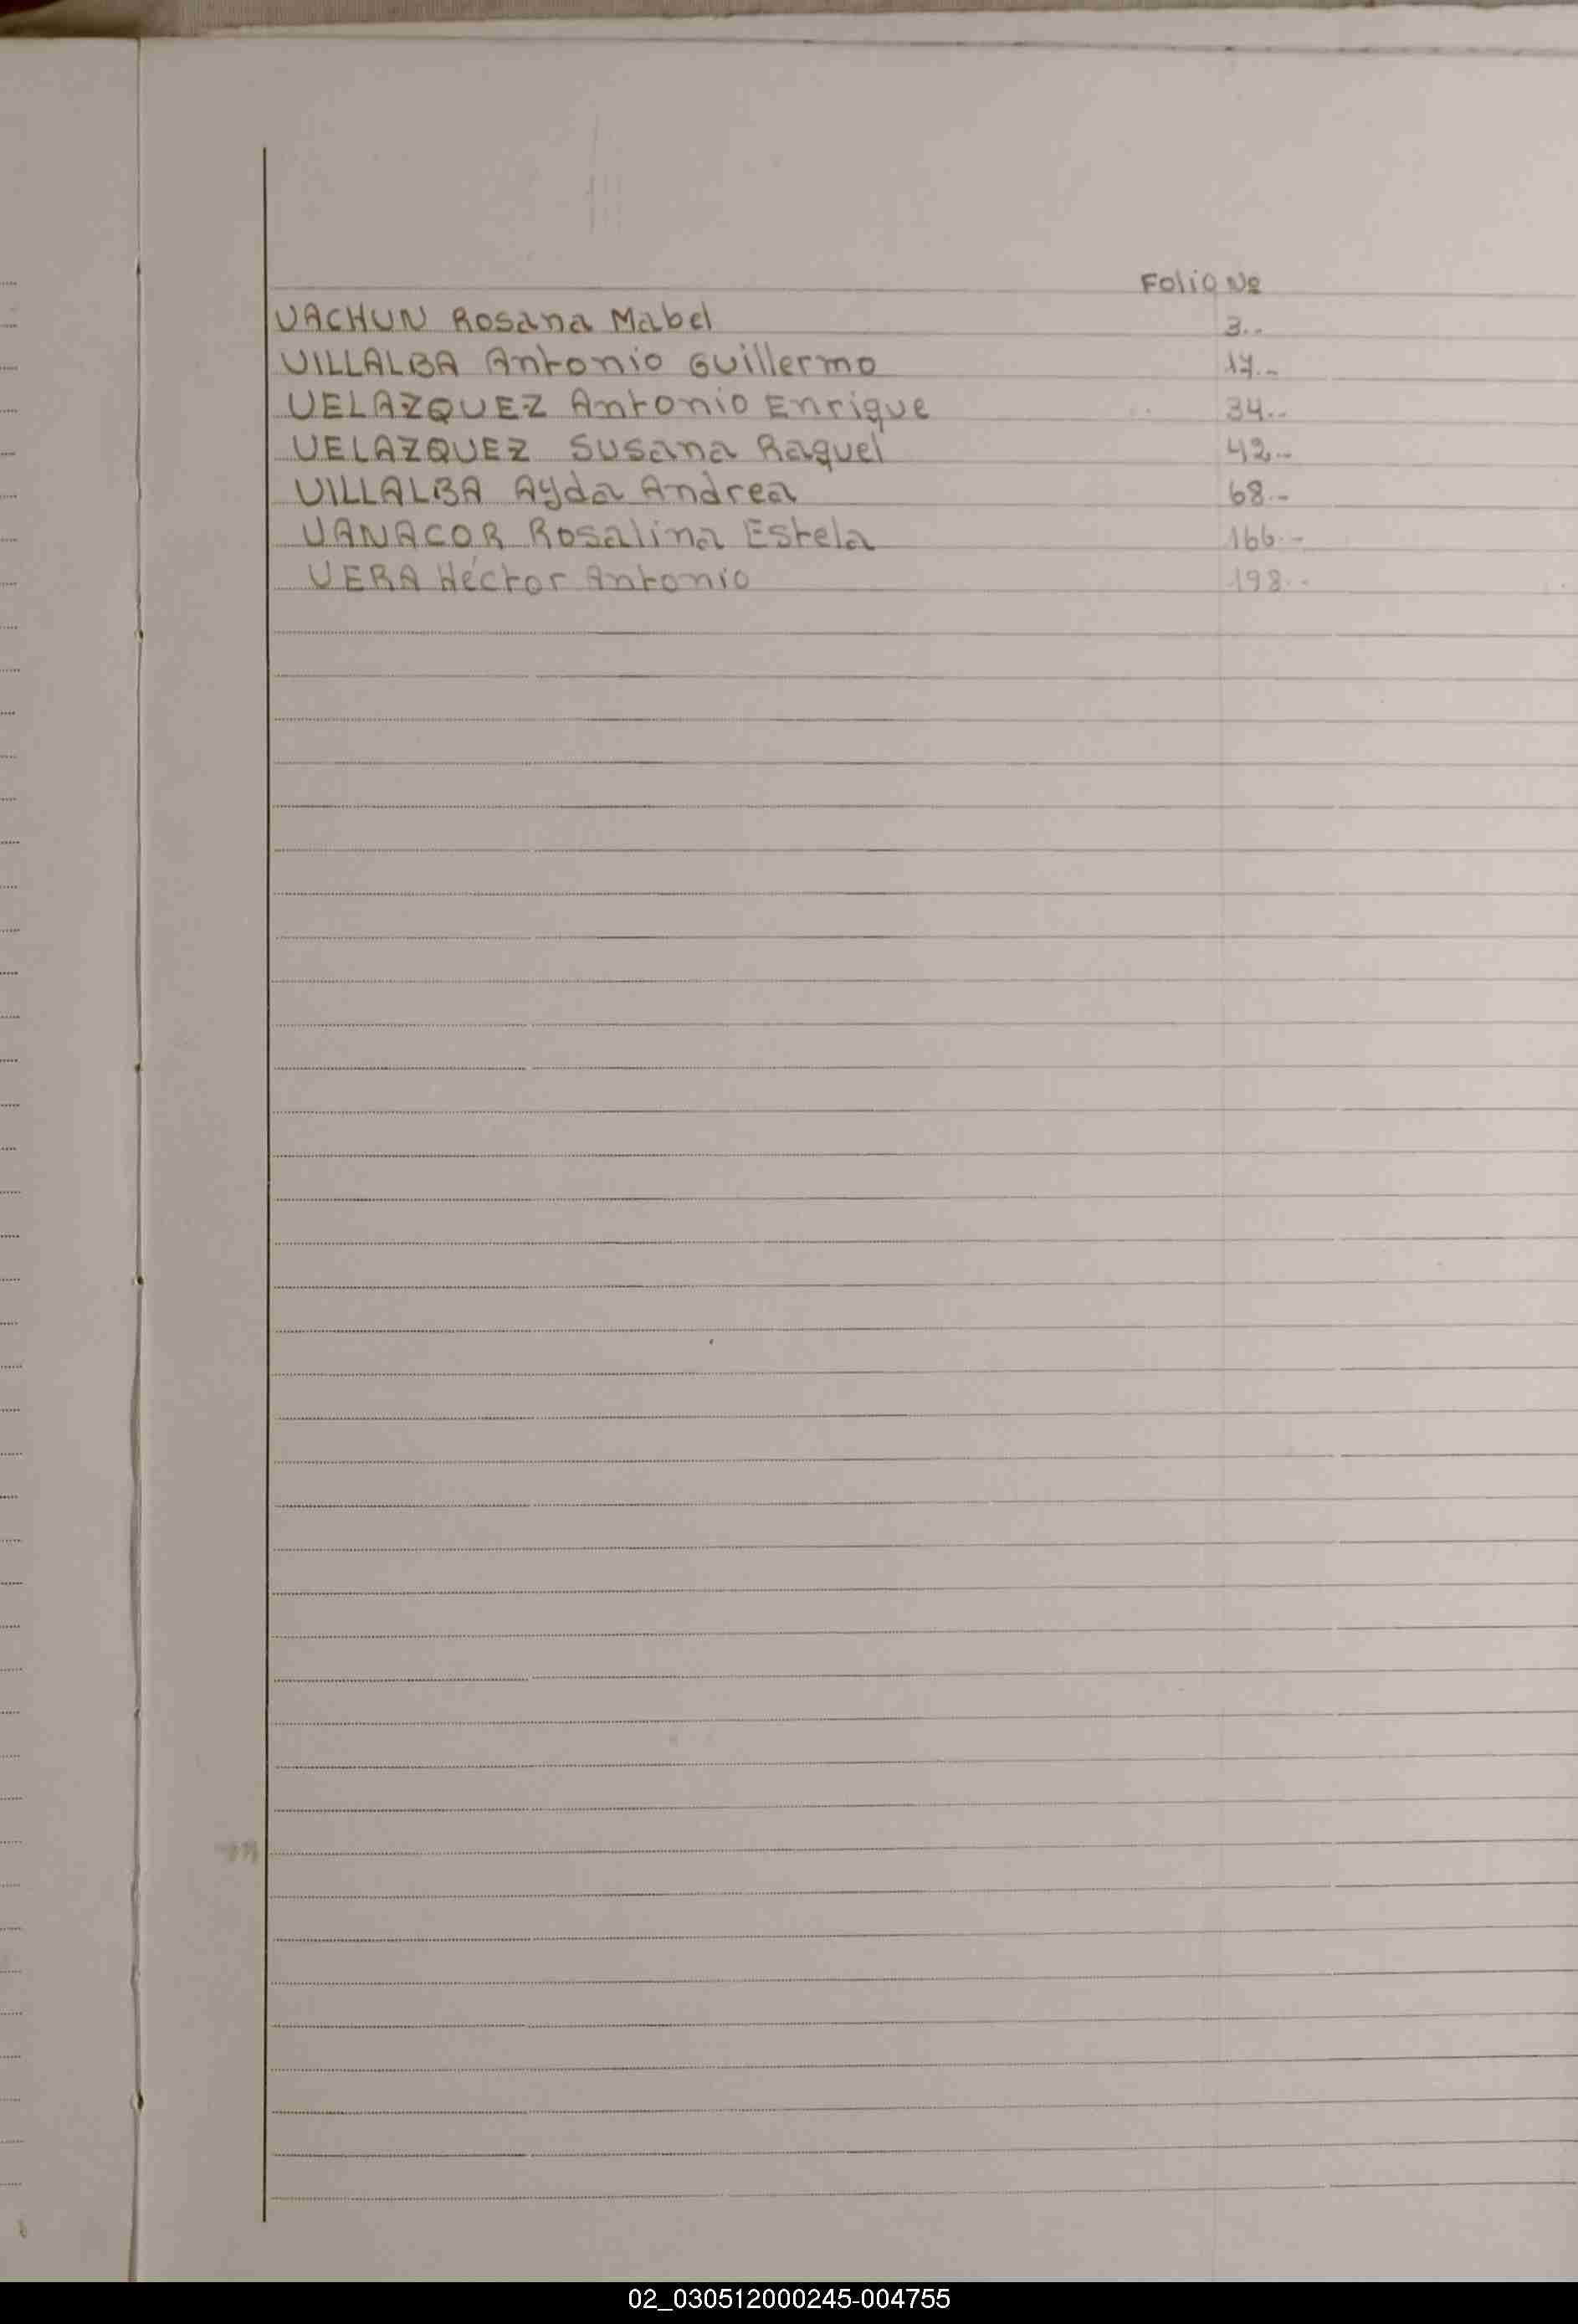 Folio Nº
VACHUN Rosana Mabel 3.-
VILLALBA Antonio Guillermo 17.-
VELAZQUEZ Antonio Enrique 34.-
VELAZQUEZ Susana Raquel 42.-
VILLALBA Ayda Andrea 68.-
VANACOR Rosalina Estela 166.-
VERA Héctor Antonio 198.-
02_030512000245-004755